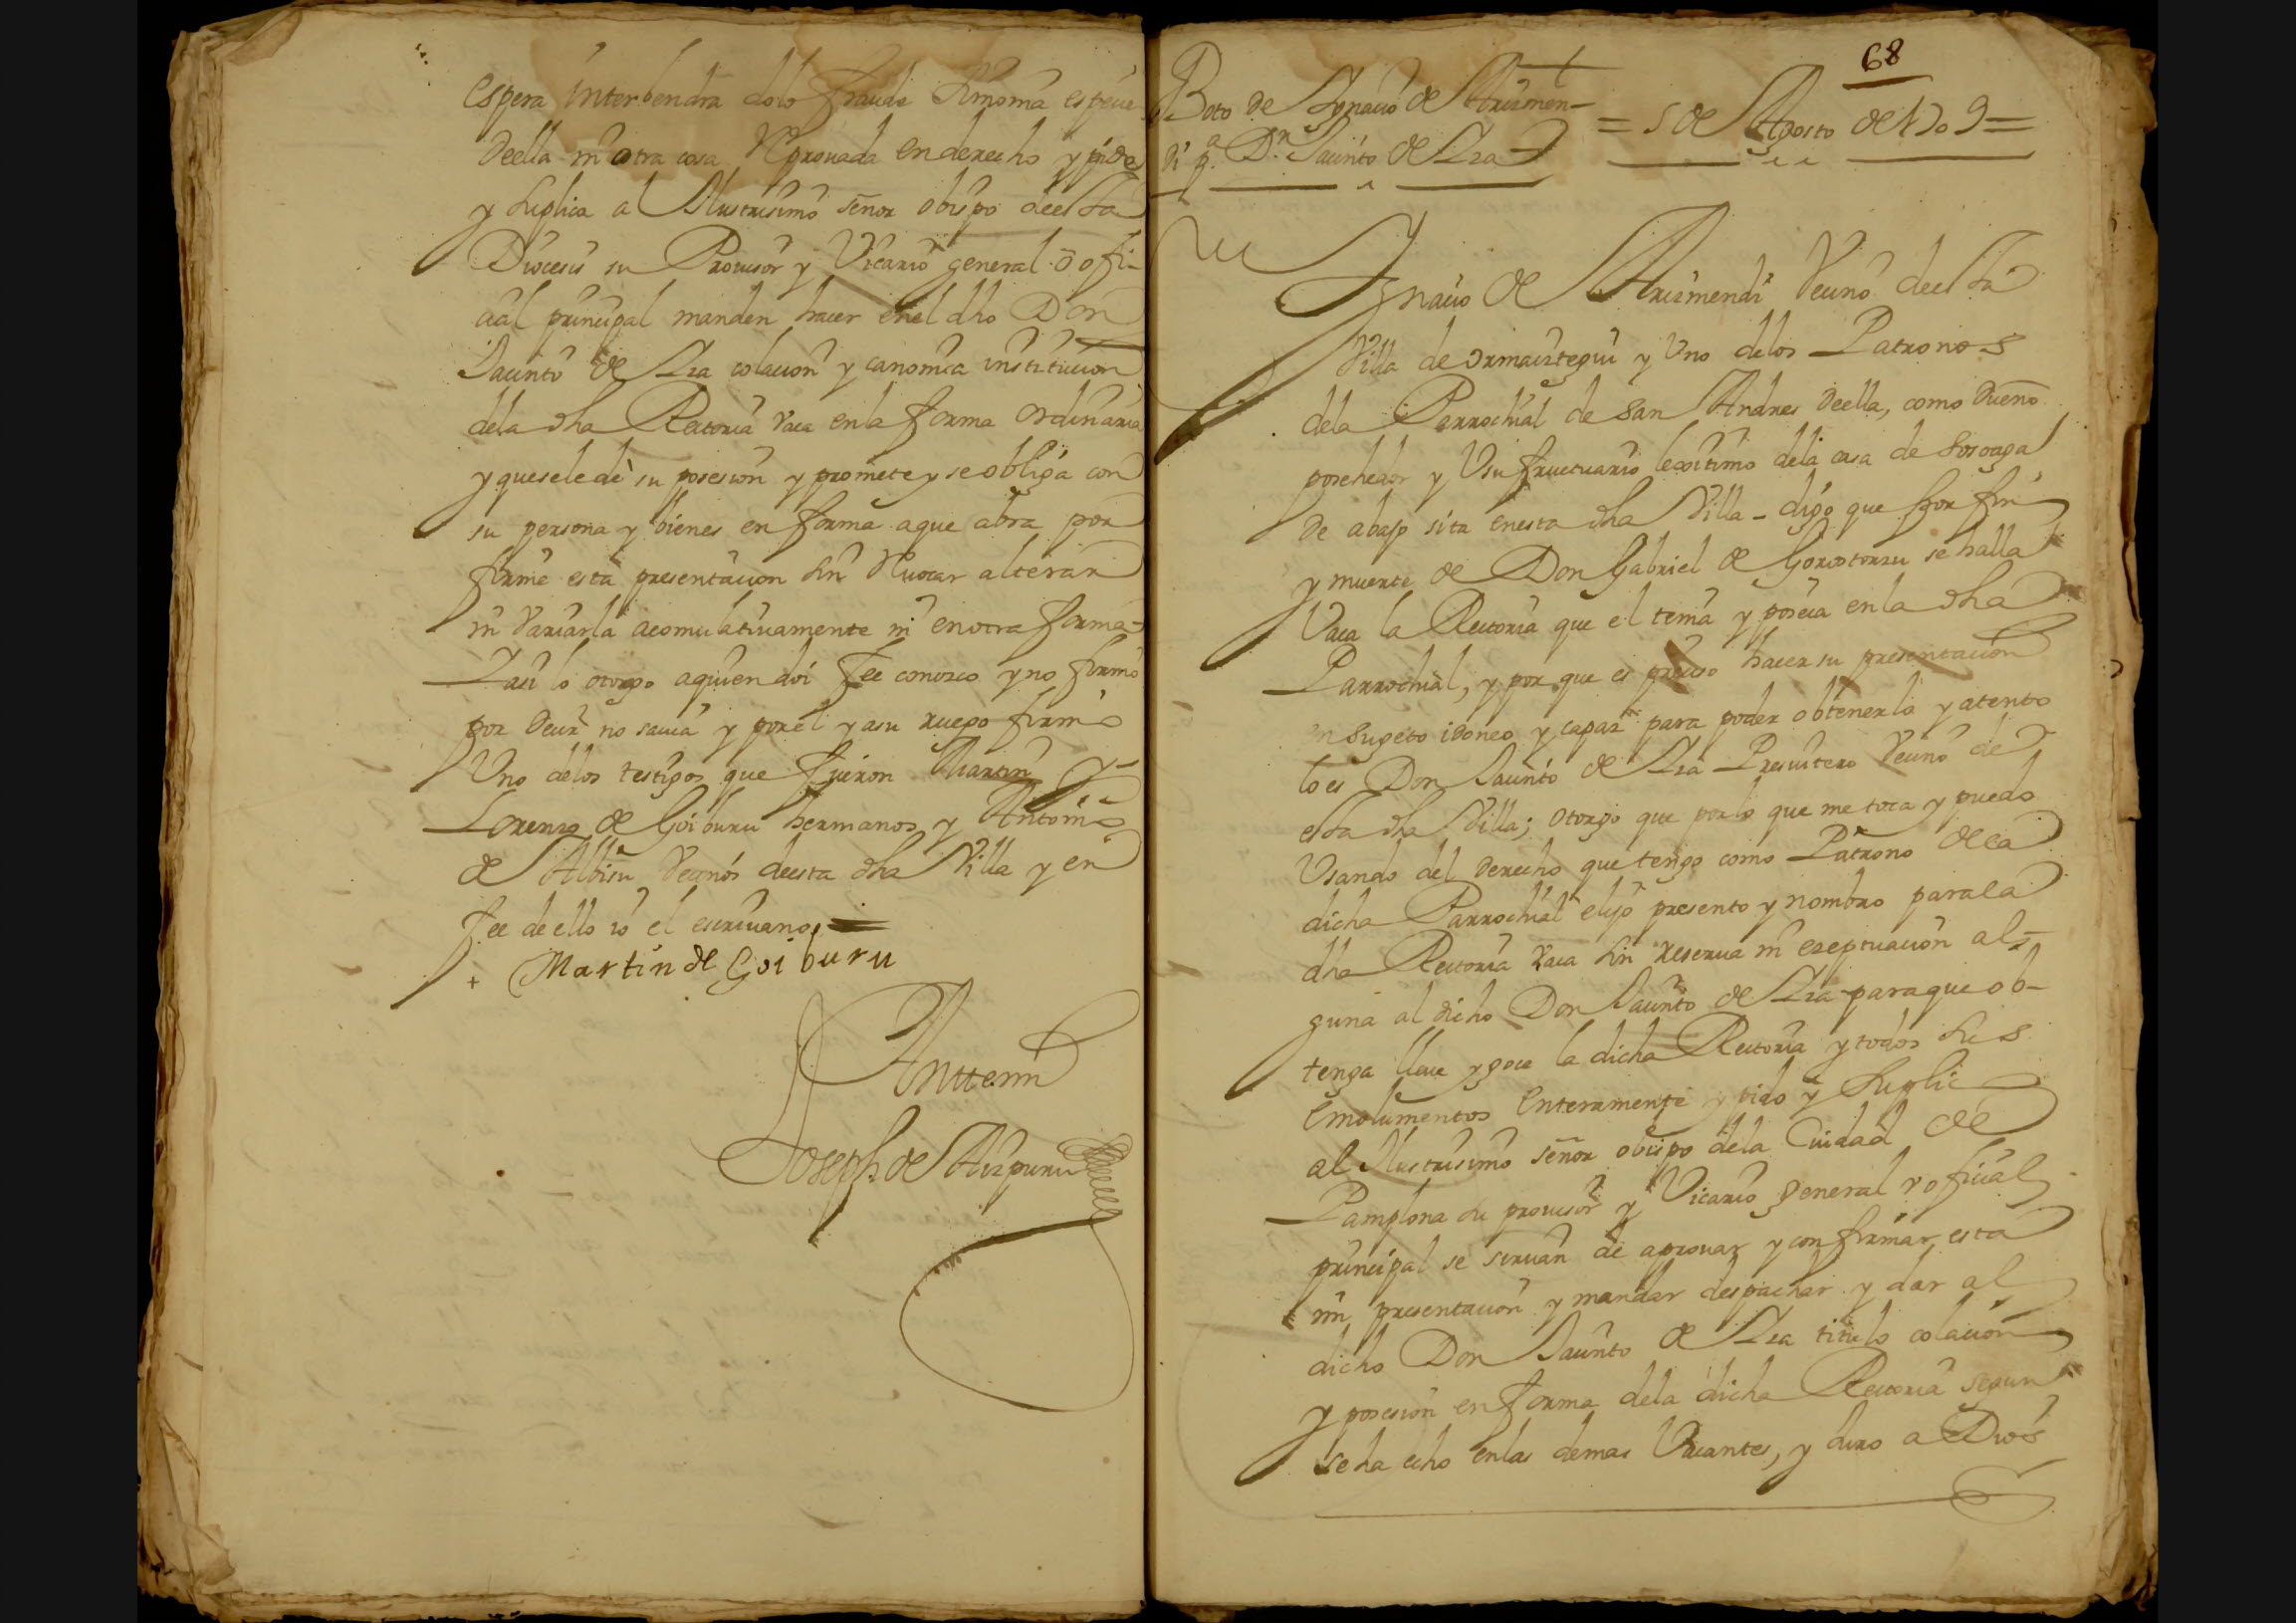 espera interbendra dolo fraude simonia espeçie
deella ni otra cosa reprouada en derecho y pide
y suplica al Illustrisimo señor obispo deesta
Dioçesis su Prouisor y Vicario general o ofi-
cial prinçipal manden hacer enel dho Don
Jacinto de Lza colaçion y canonica instituçion
dela dha Rectoria vaca enla forma ordinaria
y quesele dè su posesion y promete y se obliga con
su persona y bienes en forma aque abra por
firme esta presentaçion sin reuocar alterar
ni variarla acomulatiuamente ni enotra forma-
Y asi lo otorgo aquien doi fee conozco y no firmo
por deçir no sauia y porel y asu ruego firmò
Uno delos testigos que fueron Martin y
Lorenzo de Goiburu hermanos y Antonio
de Albisu veçinos deesta dha Villa y en
fee de ello io el escriuano
+ Martin de Goiburu
Ante mi
Joseph de Aizpuru
68
Boto de Ignaçio de Arizmen-
di pa. Dn. Jacinto de Lza
= 5 de Agosto de 1709 =
Ignaçio de Arizmendi Veçino deesta
Villa de ormaiztegui y Uno delos Patronos
dela Perrochial de San Andres deella, como dueño
posehedor y Usufructuario lexitimo dela casa de Sosoaga
de abajo sita enesta dha Villa - digo que por fin
y muerte de Don Gabriel de Gorostorzu se halla
Vaca la Rectoria que el tenia y poseia enla dha
Parrochial, y por que es preciso hacer su presentaçion
en sugeto idoneo y capaz para poder obtenerla y atento
lo es Don Jacinto de Lza Presuitero Veçino de
esta dha Villa; otorgo que porlo que me toca y puedo
Usando del derecho que tengo como Patrono dela
dicha Parrochial elijo presento y nombro parala
dha Rectoria vaca sin reserua ni exeptuaçion al-
guna al dicho Don Jacinto de Lza paraque ob-
tenga lleue y goce la dicha Rectoria y todos sus
emolumentos enteramente y pido y suplico
al Illustrisimo señor obispo dela Ciudad de
Pamplona su prouisor y Vicario general y ofiçial
prinçipal se siruan de aprouar y confirmar esta
mi presentaçion y mandar despachar y dar al
dicho Don Jacinto de Lza titulo colaçion
y posesion en forma dela dicha Rectoria segun
se ha echo enlas demas Vacantes, y Juro a Dios